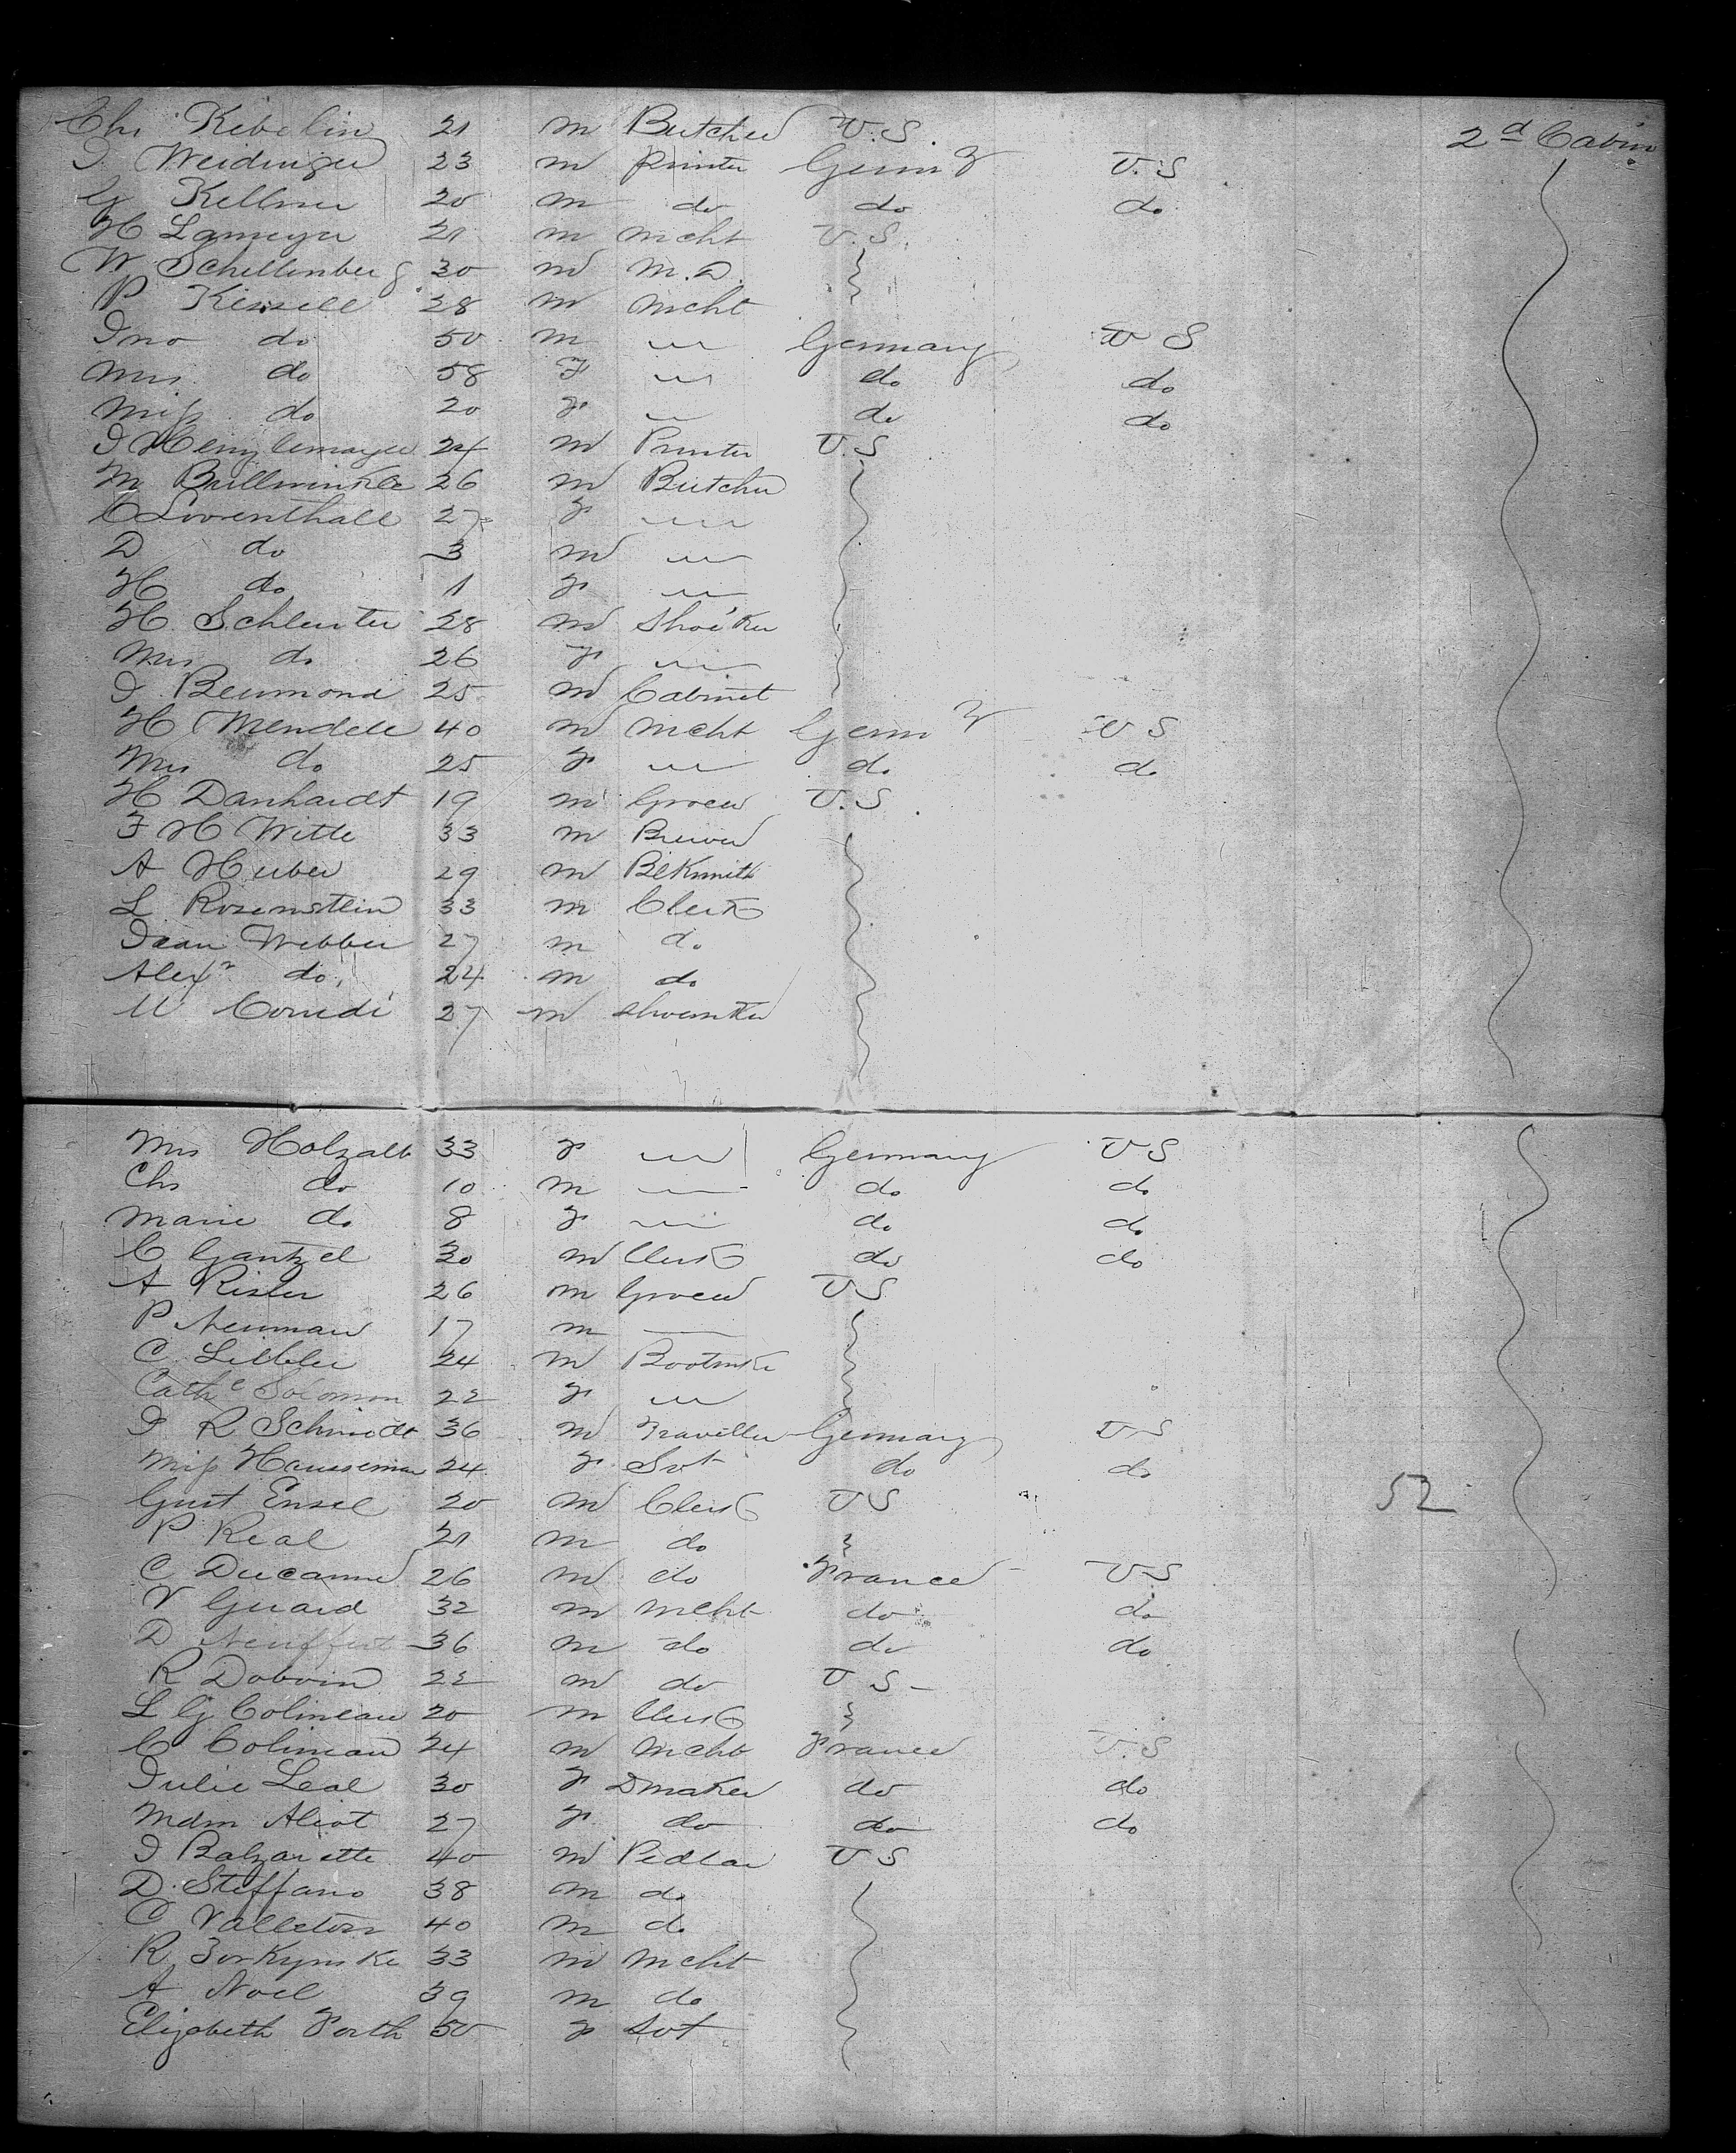 Chs Kibelin 21 m Butcher U.S. 2d Cabin
I. Weidinger 23 m printer Germy U.S
G Kellner 20 m do do do
H Lameyer 21 m mcht U.S.
W Schellenberg 30 m M.D.
P 28 m mcht
Jno do 50 m " Germany U S
Mrs do 58 F " do do
Miss do 20 F " do do
24 m Printer U.S
M Bullwinkle 26 m Butcher
C Loventhall 27 F "
D do 3 m "
H do 1 F "
H. Schleuter 28 m Shoe'ker
Mrs do 26 F "
I. Beumond 25 m Cabinet
H Mendell 40 m mcht Germy U S
Mrs do 25 F " do do
H Danhardt 19 m Grocer U.S.
F H Witte 33 m Brewer
A Huber 29 m Blksmith
L Rosenstein 33 m Clerk
Jean Webber 27 m do
Alexr do, 24 m do
27 m shoemker
Mrs Holzalb 33 F " Germany U S
Chs do 10 m " do do
Marie do 8 F " do do
C Gantzel 30 m Clerk do do
A Risler 26 m Grocer U S
P Neuman 17 m —
C. Libbler 24 m Bootmkr
Cathe Solomon 22 F "
I R Schmidt 36 m Traveller Germany U S
Miss Hauseman 24 F Svt do do
Gust Ensel 20 m Clerk U S 52
P Real 21 m do
C Ducanne 26 m do France U S
V Guard 32 m mcht do do
D Neuffert 36 m do do do
R Doboin 22 m do U S
L G Colineau 20 m Clerk
C Colineau 24 m mcht France U.S
Julie Leal 30 F Dmaker do do
Mdm Aliot 27 F do do do
I Balzarette 40 m Pedlar U S
D. Steffano 38 m do
C Valleton 40 m do
R Zorkymske 33 m mcht
A Noel 39 m do
Elizabeth Porth 50 F Svt